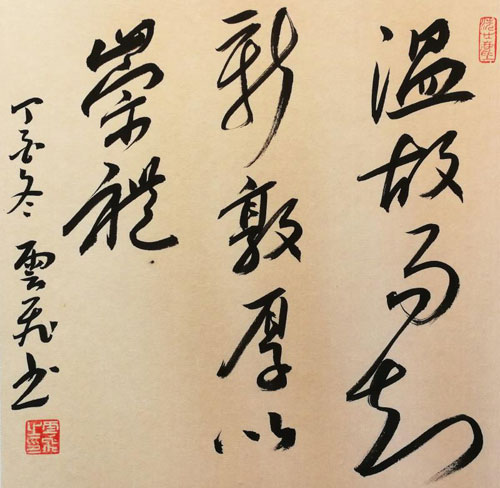 温故而知
新敦厚以
崇禮
丁酉冬 雲飛书